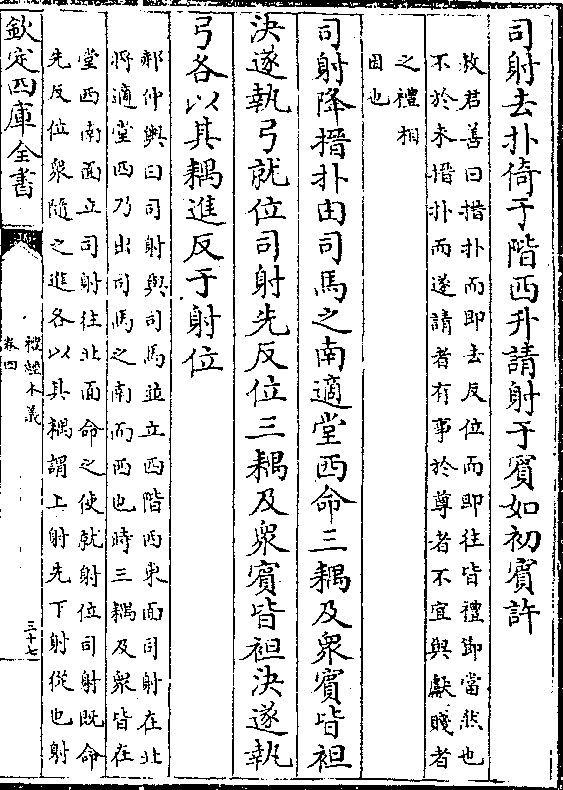 司射去扑倚于階西升請射于賓如初賓許
敖君善曰搢扑而即去反位而即往皆禮節當然也
不於未搢扑而遂請者有事於尊者不宜與獻賤者
之禮相
因也
司射降搢扑由司馬之南適堂西命三耦及衆賓皆袒
決遂執弓就位司射先反位三耦及衆賓皆袒決遂執
弓各以其耦進反于射位
郝仲輿曰司射與司馬並立西階西東面司射在北
將適堂西乃出司馬之南而西也時三耦及衆皆在
堂西南面立司射往北面命之使就射位司射既命
先反位衆隨之進各以其耦謂上射先下射從也射
欽定四庫全書
禮經本義
卷四
三十七